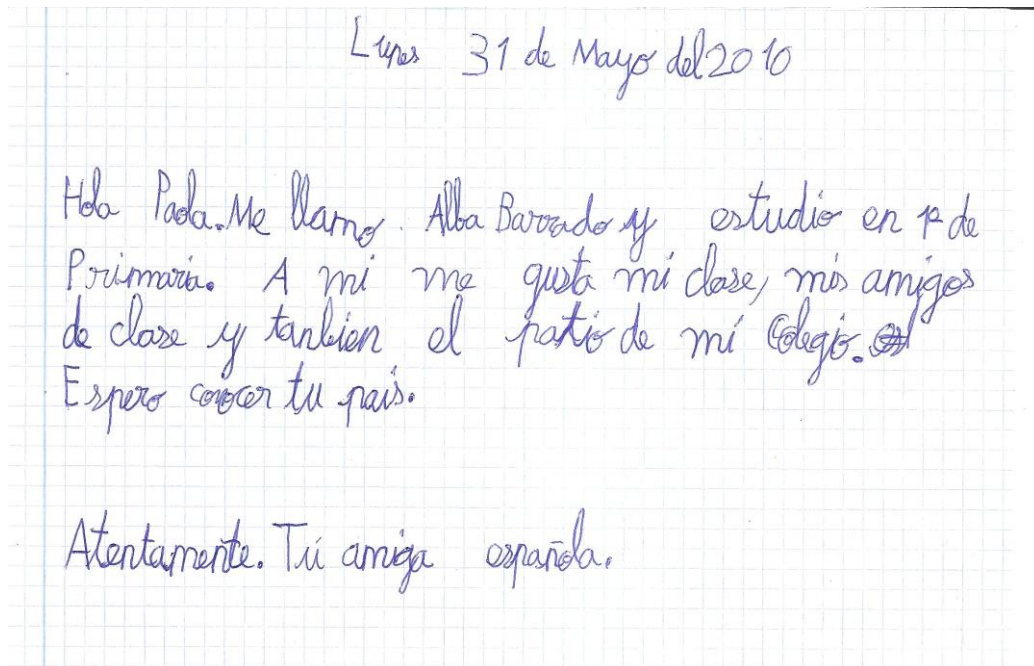 Lunes 31 de Mayo del 2010
Hola Paola. Me llamo. Alba Barrado y estudio en 1º de
Primaria. A mi me gusta mi clase, mis amigos
de clase y tanbien el patio de mi Colegio.
Espero conocer tu pais.
Atentamente. Tú amiga española.